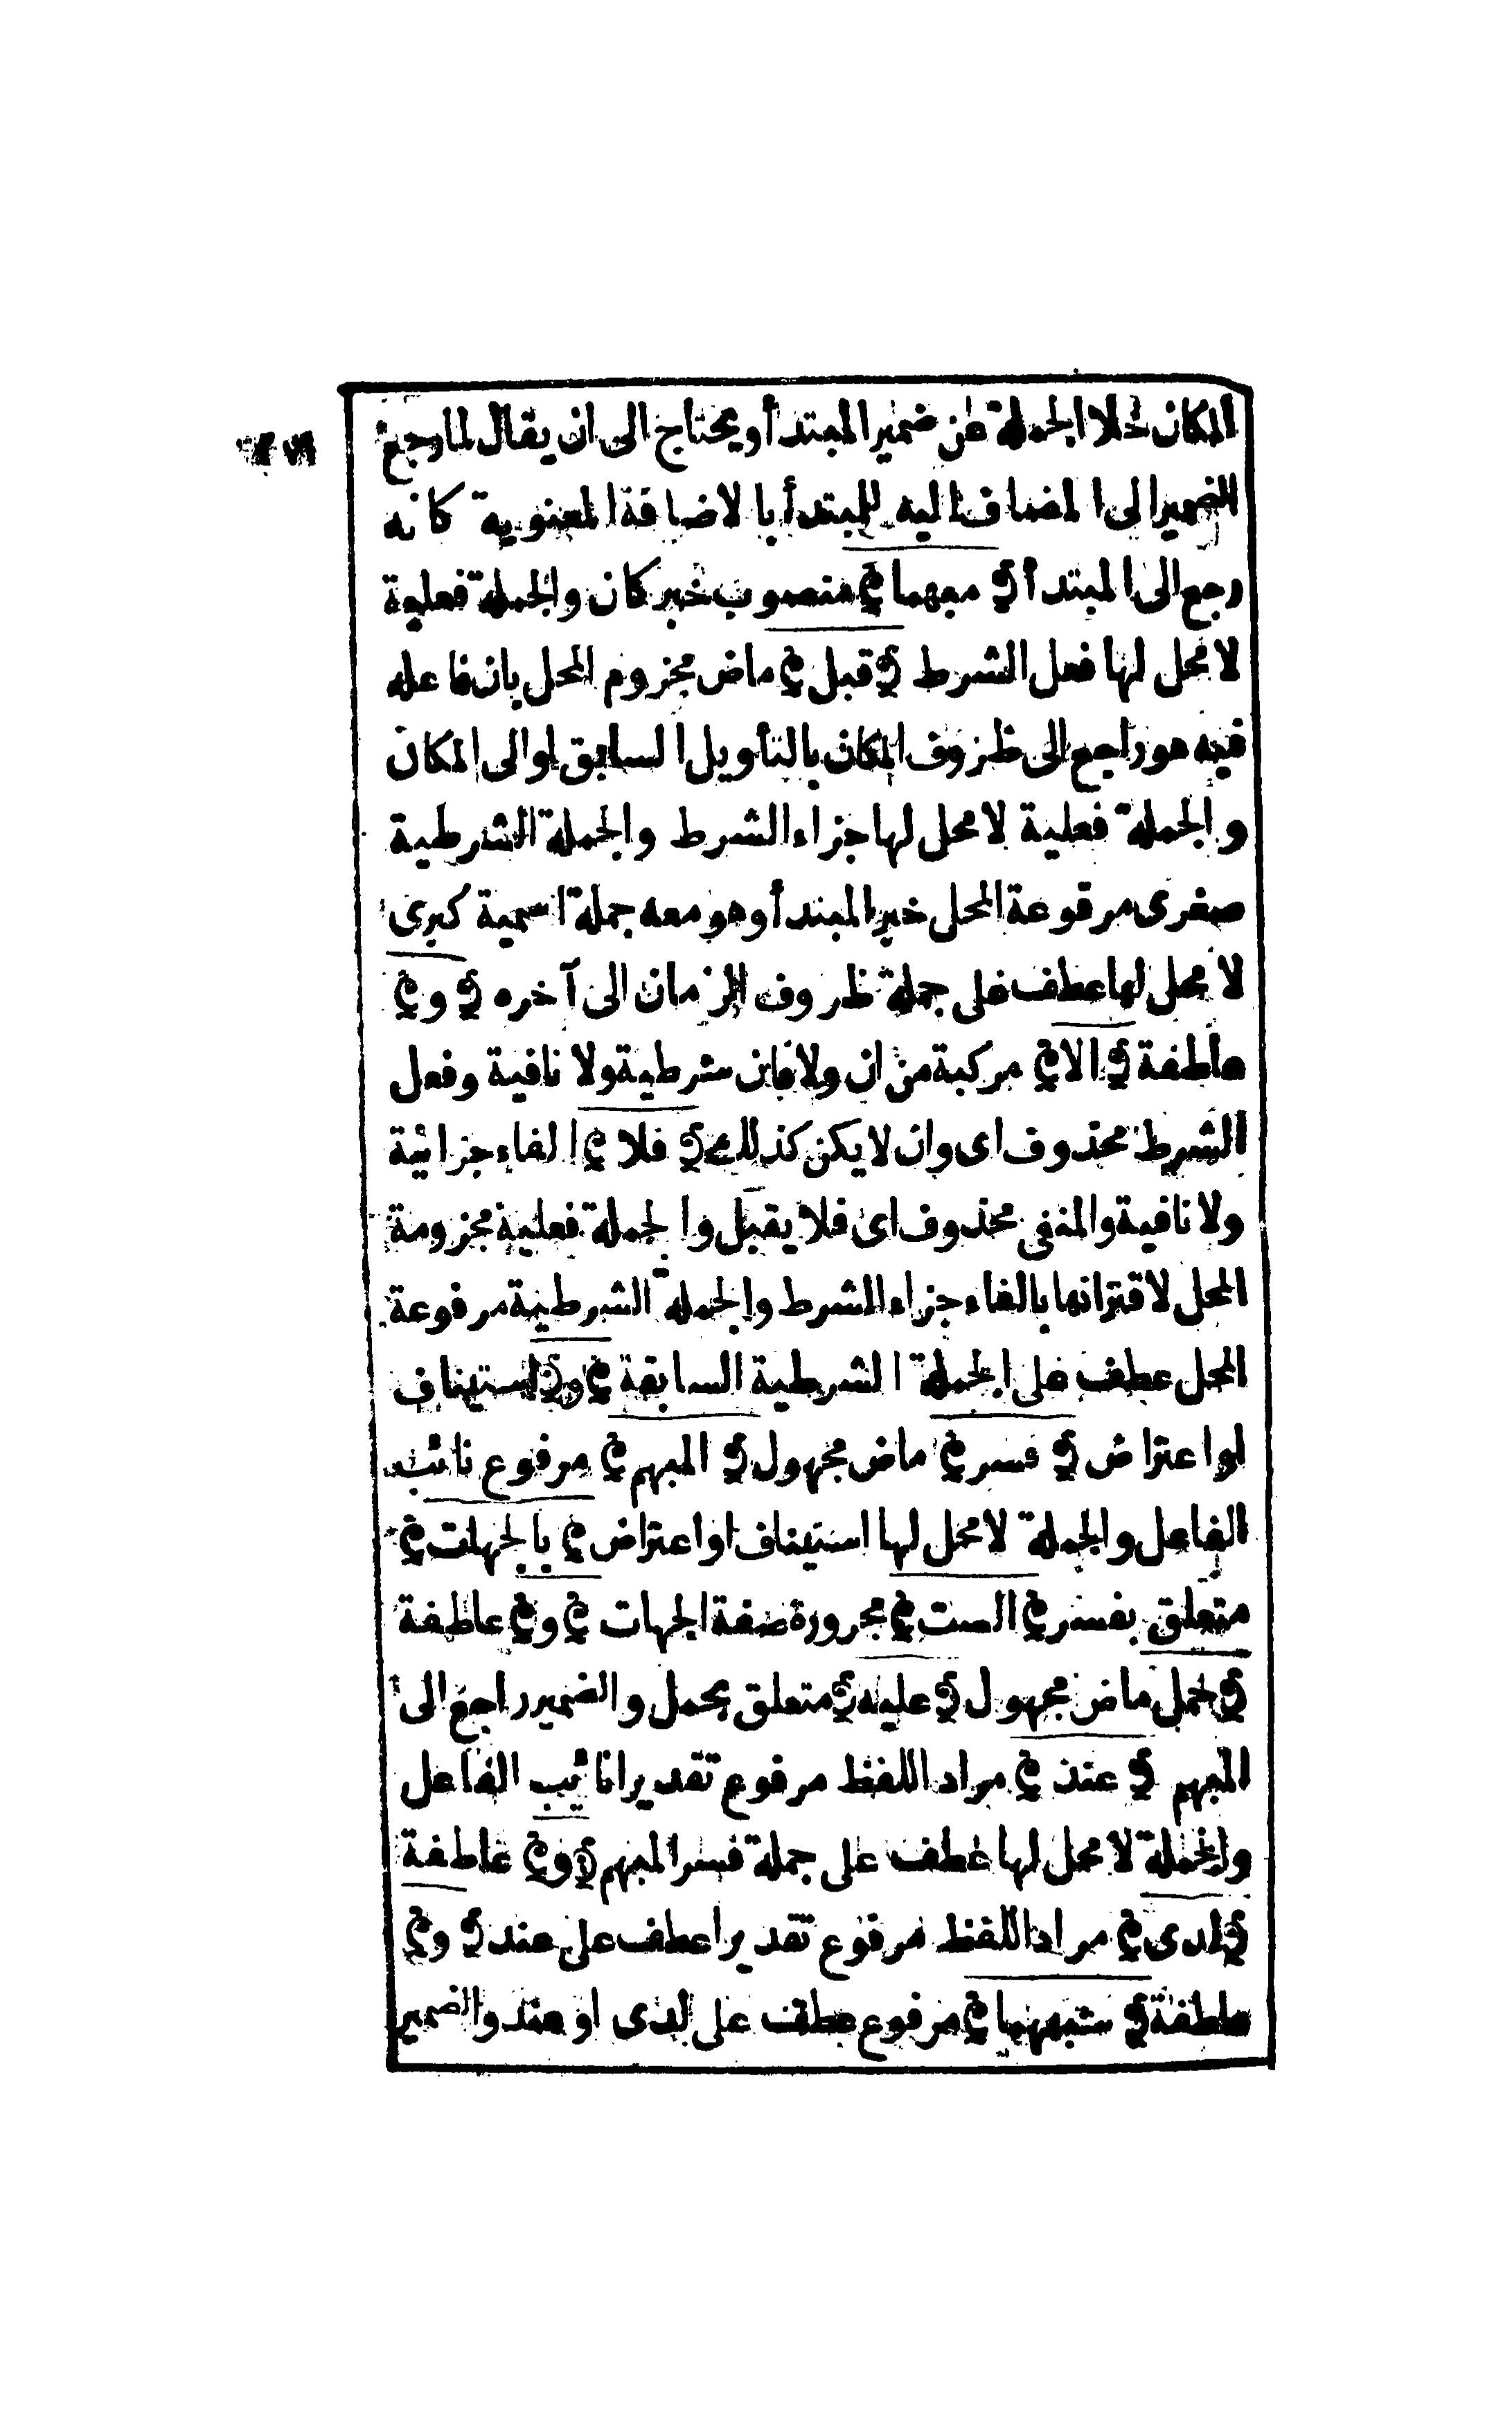 المكان خلا الجملة عن ضمير المبتدأ ويحتاج الى ان يقال لما رجع
الضمير الى المضاف اليه للمبتدأ بالاضافة المعنوية كانه
رجع الى المبتدأ ﴿ مبهما ﴾ منصوب خبر كان والجملة فعلية
لا محل لها فعل الشرط ﴿ قبل ﴾ ماض مجزوم المحل بان فاعله
فيه هو راجع الى ظروف المكان بالتأويل السابق او الى المكان
والجملة فعلية لا محل لها جزاء الشرط والجملة الشرطية
صغرى مرفوعة المحل خبر المبتدأ وهو معه جملة اسمية كبرى
لا محل لها عطف على جملة ظروف الزمان الى آخره ﴿ و ﴾
عاطفة ﴿ الا ﴾ مركبة من ان ولا فان شرطية ولا نافية وفعل
الشرط محذوف اى وان لا يكن كذلك ﴿ فلا ﴾ الفاء جزائية
ولا نافية والمنفى محذوف اى فلا يقبل والجملة فعلية مجزومة
المحل لاقترانها بالفاء جزاء الشرط والجملة الشرطية مرفوعة
المحل عطف على الجملة الشرطية السابقة ﴿ و ﴾ استيناف
او اعتراض ﴿ فسر ﴾ ماض مجهول ﴿ المبهم ﴾ مرفوع نائب
الفاعل والجملة لا محل لها استيناف او اعتراض ﴿ بالجهات ﴾
متعلق بفسر ﴿ الست ﴾ مجرورة صفة الجهات ﴿ و ﴾ عاطفة
﴿ حمل ماض مجهول ﴿ عليه ﴾ متعلق بحمل والضمير راجع الى
المبهم ﴿ عند ﴾ مراد اللفظ مرفوع تقديرا نائب الفاعل
والجملة لا محل لها عطف على جملة فسر المبهم ﴿ و ﴾ عاطفة
﴿ لدى ﴾ مراد اللفظ مرفوع تقديرا عطف على عند ﴿ و ﴾
عاطفة ﴿ شبههما ﴾ مرفوع عطف على لدى او عند والضمير